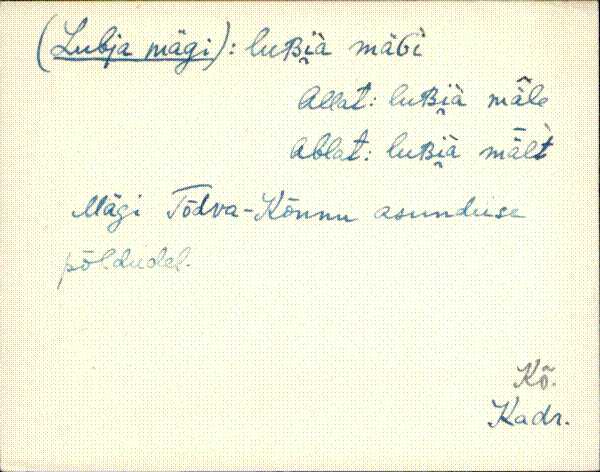 (Lubja mägi): luʙi̯à mäɢì
Allat: luʙi̯à mä̂le
Ablat: luʙi̯à mǟlt̀
Mägi Tõdva-Kõnnu asunduse
põldudel.
Kõ.
Kadr.